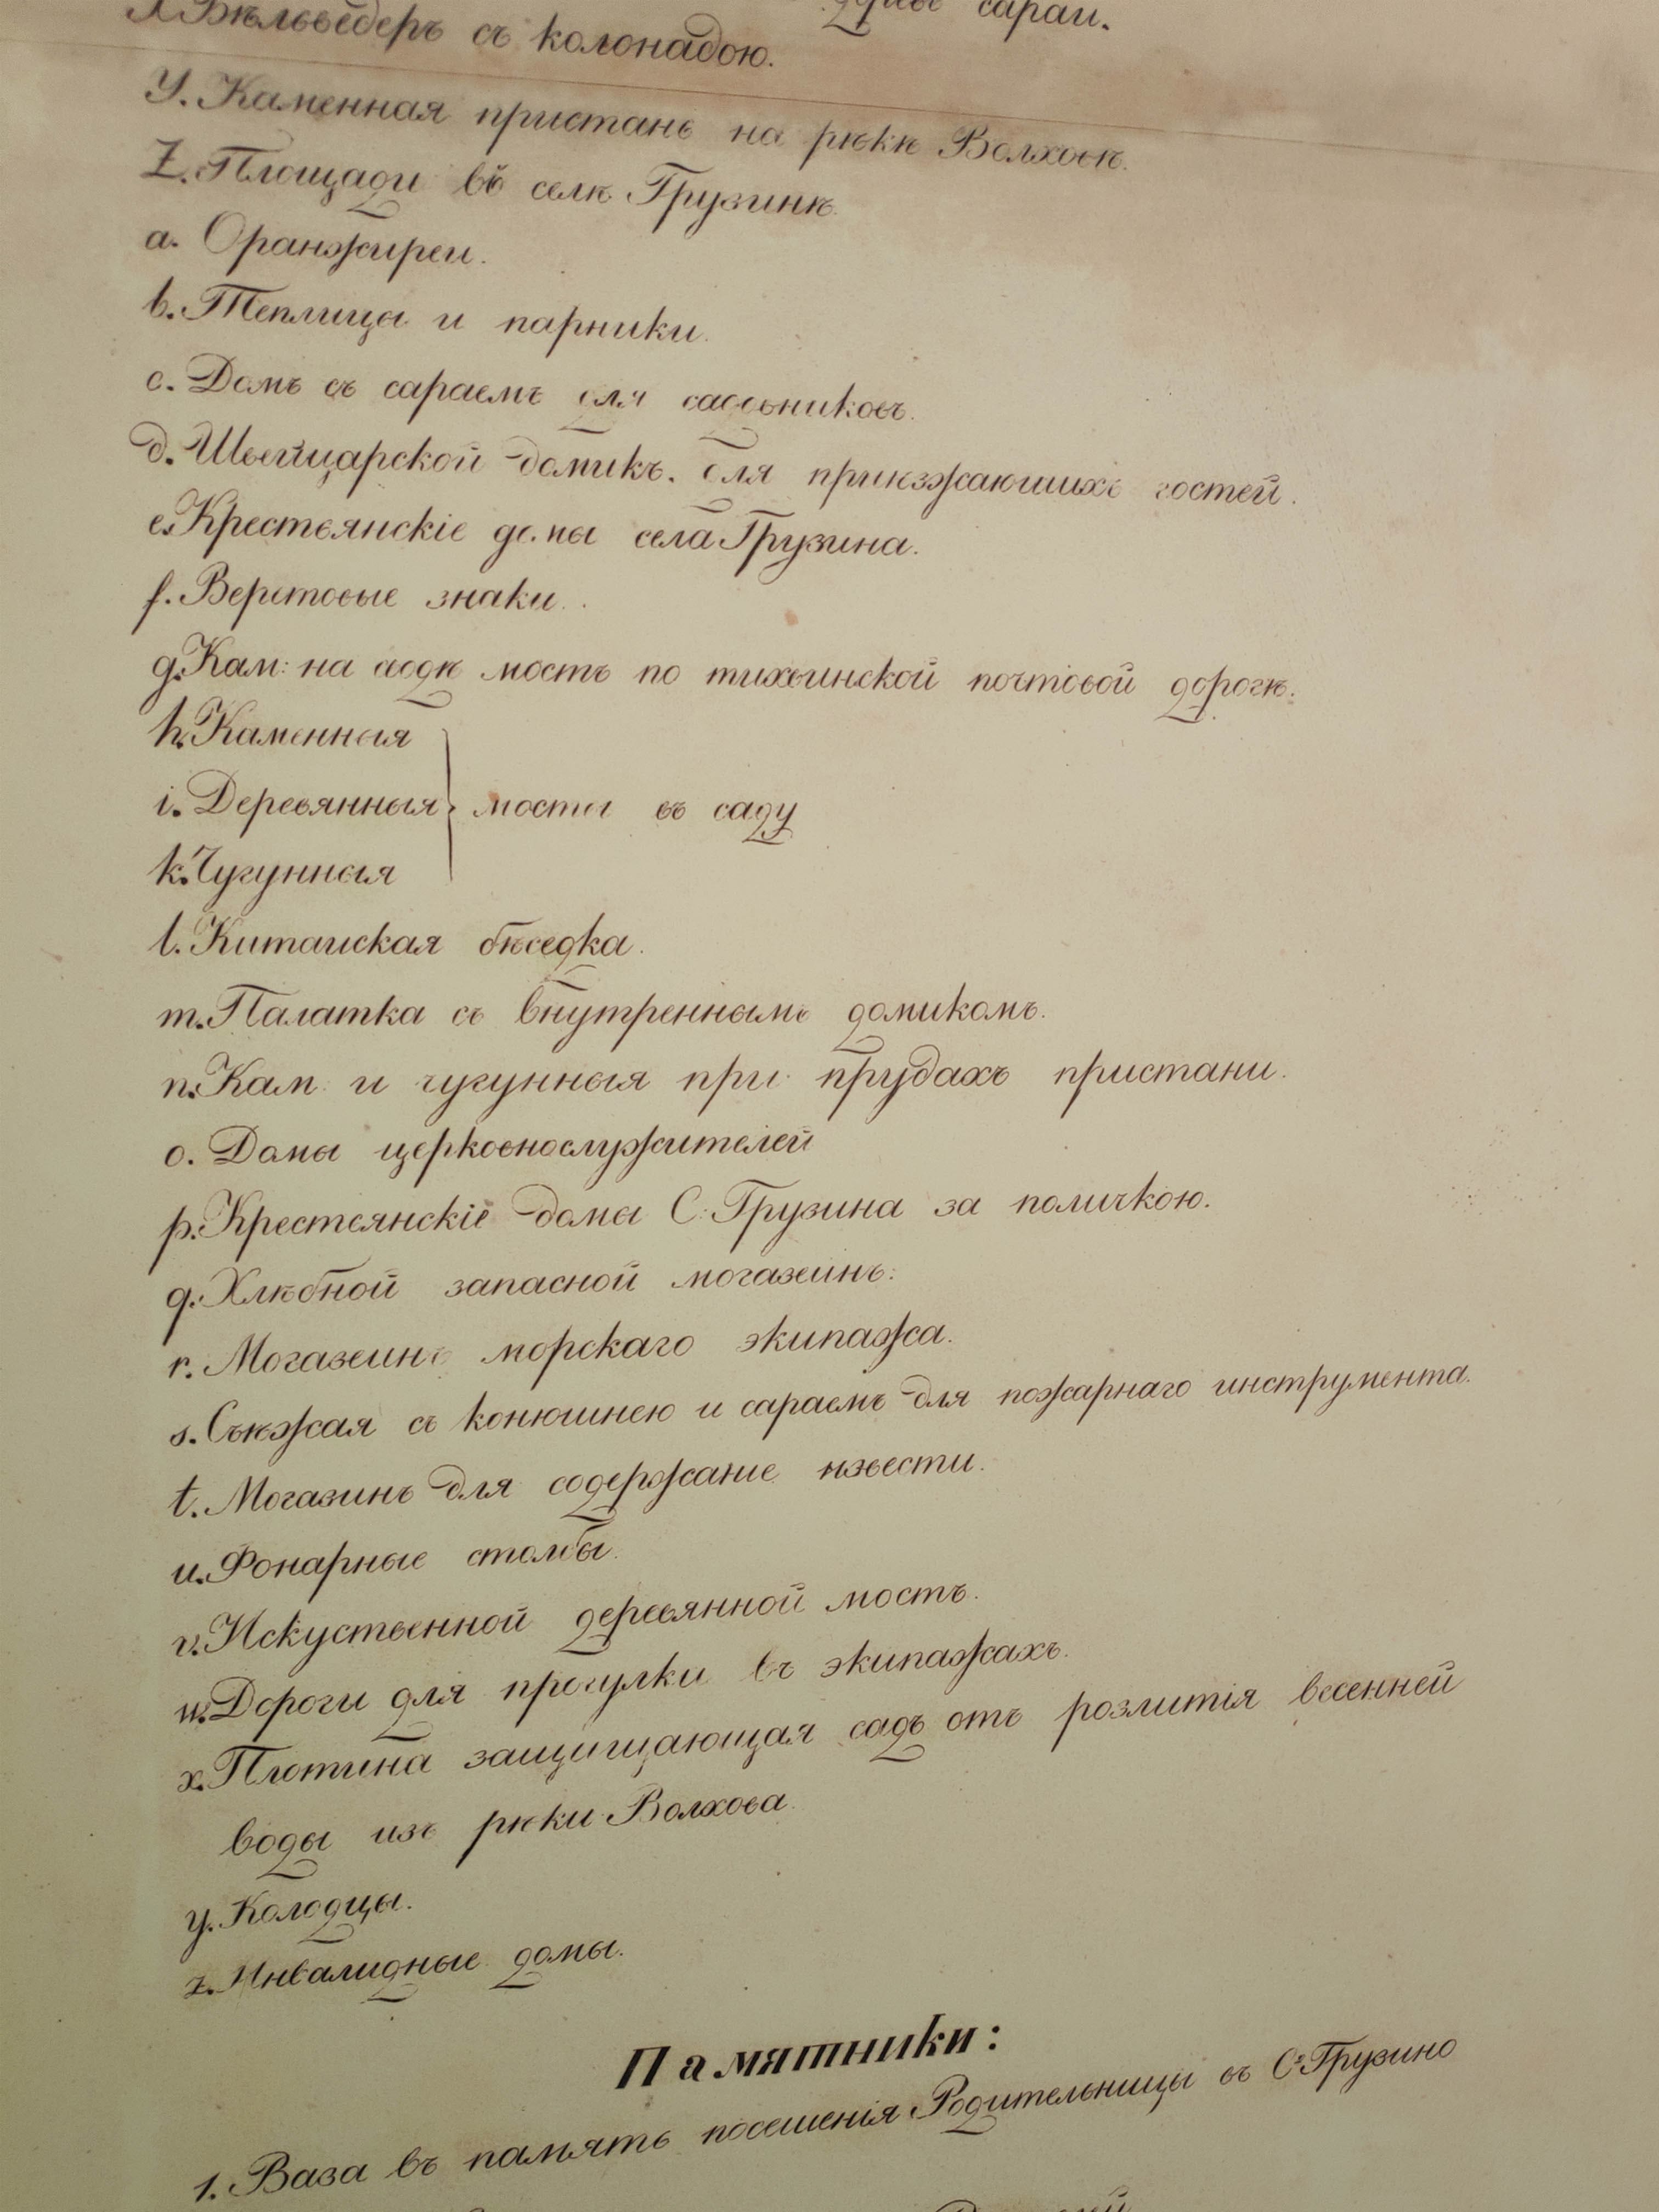 сараи.
Бѣльведеръ съ колонадою.
Y. Каменная пристань на рѣкѣ Волховѣ.
Z. Площади въ селѣ Грузинѣ.
a. Оранжиреи.
b. Теплицы и парники.
c. Домъ съ сараемъ для садовниковъ.
d. Швейцарской домикъ. для приѣзжающихъ гостей.
e. Крестьянскіе домы села Грузина.
f. Верстовые знаки.
g. Кам: на водѣ мостъ по тихвинской почтовой дорогѣ.
h. Каменныя
i. Деревянныя } мосты въ саду
k. Чугунныя
l. Китайская бѣседка.
m. Палатка съ внутреннымъ домикомъ.
n. Кам: и чугунныя при прудахъ пристани.
o. Домы церковнослужителей
p. Крестьянскіе домы С: Грузина за поличкою.
q. Хлѣбной запасной могазейнъ.
r. Могазеинъ морскаго экипажа.
s. Съѣзжая съ конюшнею и сараемъ для пожарнаго инструмента.
t. Могазинъ для содержание извести.
u. Фонарные столбы.
v. Искуственной деревянной мостъ.
w. Дороги для прогулки въ экипажахъ.
x. Плотина защищающая садъ отъ розлитія весенней
воды изъ рѣки Волхова.
y. Колодцы.
z. Инвалидные домы.
Памятники:
1. Ваза въ память посешенія Родительницы въ Сѣ Грузино